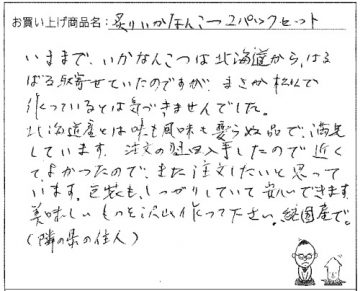 お買い上げ商品名：炙りいかなんこつ2パックセット
いままで、いかなんこつは北海道から、はる
ばる取寄せていたのですが、まさか松江で
作っているとは気づきませんでした。
北海道産とは味も風味も変らぬ品で、満足
しています。注文の翌日入手したので近く
て、よかったので、また注文したいと思って
います。包装も、しっかりしていて安心できます。
美味しいものを沢山作って下さい。
（隣の県の住人）